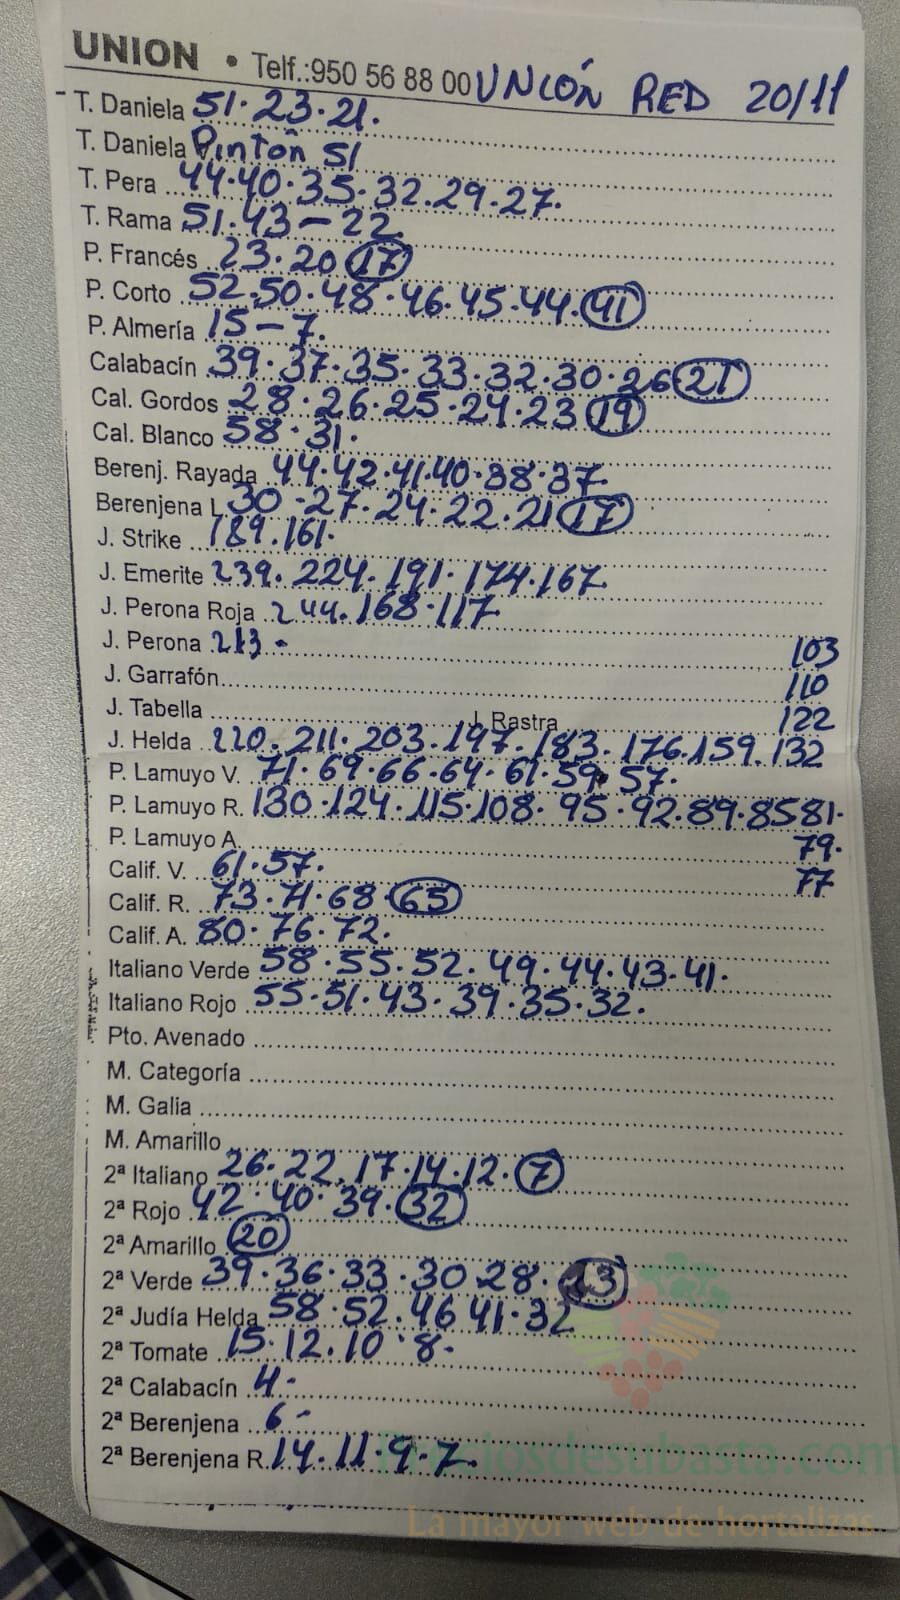 UNION • Telf.:950 56 88 00 UNIÓN RED 20/11
T. Daniela 51·23·21.
T. Daniela Pintón 51
T. Pera 44·40·35·32.29·27.
T. Rama 51.43-22
P. Francés 23·20 17
P. Corto 52.50·48·46·45·44·41
P. Almería 15-7.
Calabacín 39·37·35·33·32·30·26 21
Cal. Gordos 28·26·25·24·23 19
Cal. Blanco 58·31.
Berenj. Rayada 44·42·41·40·38·37
Berenjena L 30·27·24·22·21 17
J. Strike 189.161.
J. Emerite 239. 224. 191. 174.167
J. Perona Roja 244.168·117
J. Perona 213- 103
J. Garrafón 110
J. Tabella J. Rastra 122
J. Helda 220.211.203.197.183.176.159.132
P. Lamuyo V. 71·69·66·64·61·59·57.
P. Lamuyo R. 130·124·115·108·95·92.89·85 81.
P. Lamuyo A. 79.
Calif. V. 61·57. 77
Calif. R. 73·71·68·65
Calif. A. 80·76·72.
Italiano Verde 58·55.52.49.44.43.41.
Italiano Rojo 55·51.43·39·35·32.
Pto. Avenado
M. Categoría
M. Galia
M. Amarillo
2ª Italiano 26.22.17·14·12·7
2ª Rojo 42·40·39·32
2ª Amarillo 20
2ª Verde 39·36·33·30 28·23
2ª Judía Helda 58·52.46 41·32
2ª Tomate 15.12.10·8-
2ª Calabacín 4-
2ª Berenjena 6-
2ª Berenjena R. 14.11·9·7.
Preciosdesubasta.com
La mayor web de hortalizas